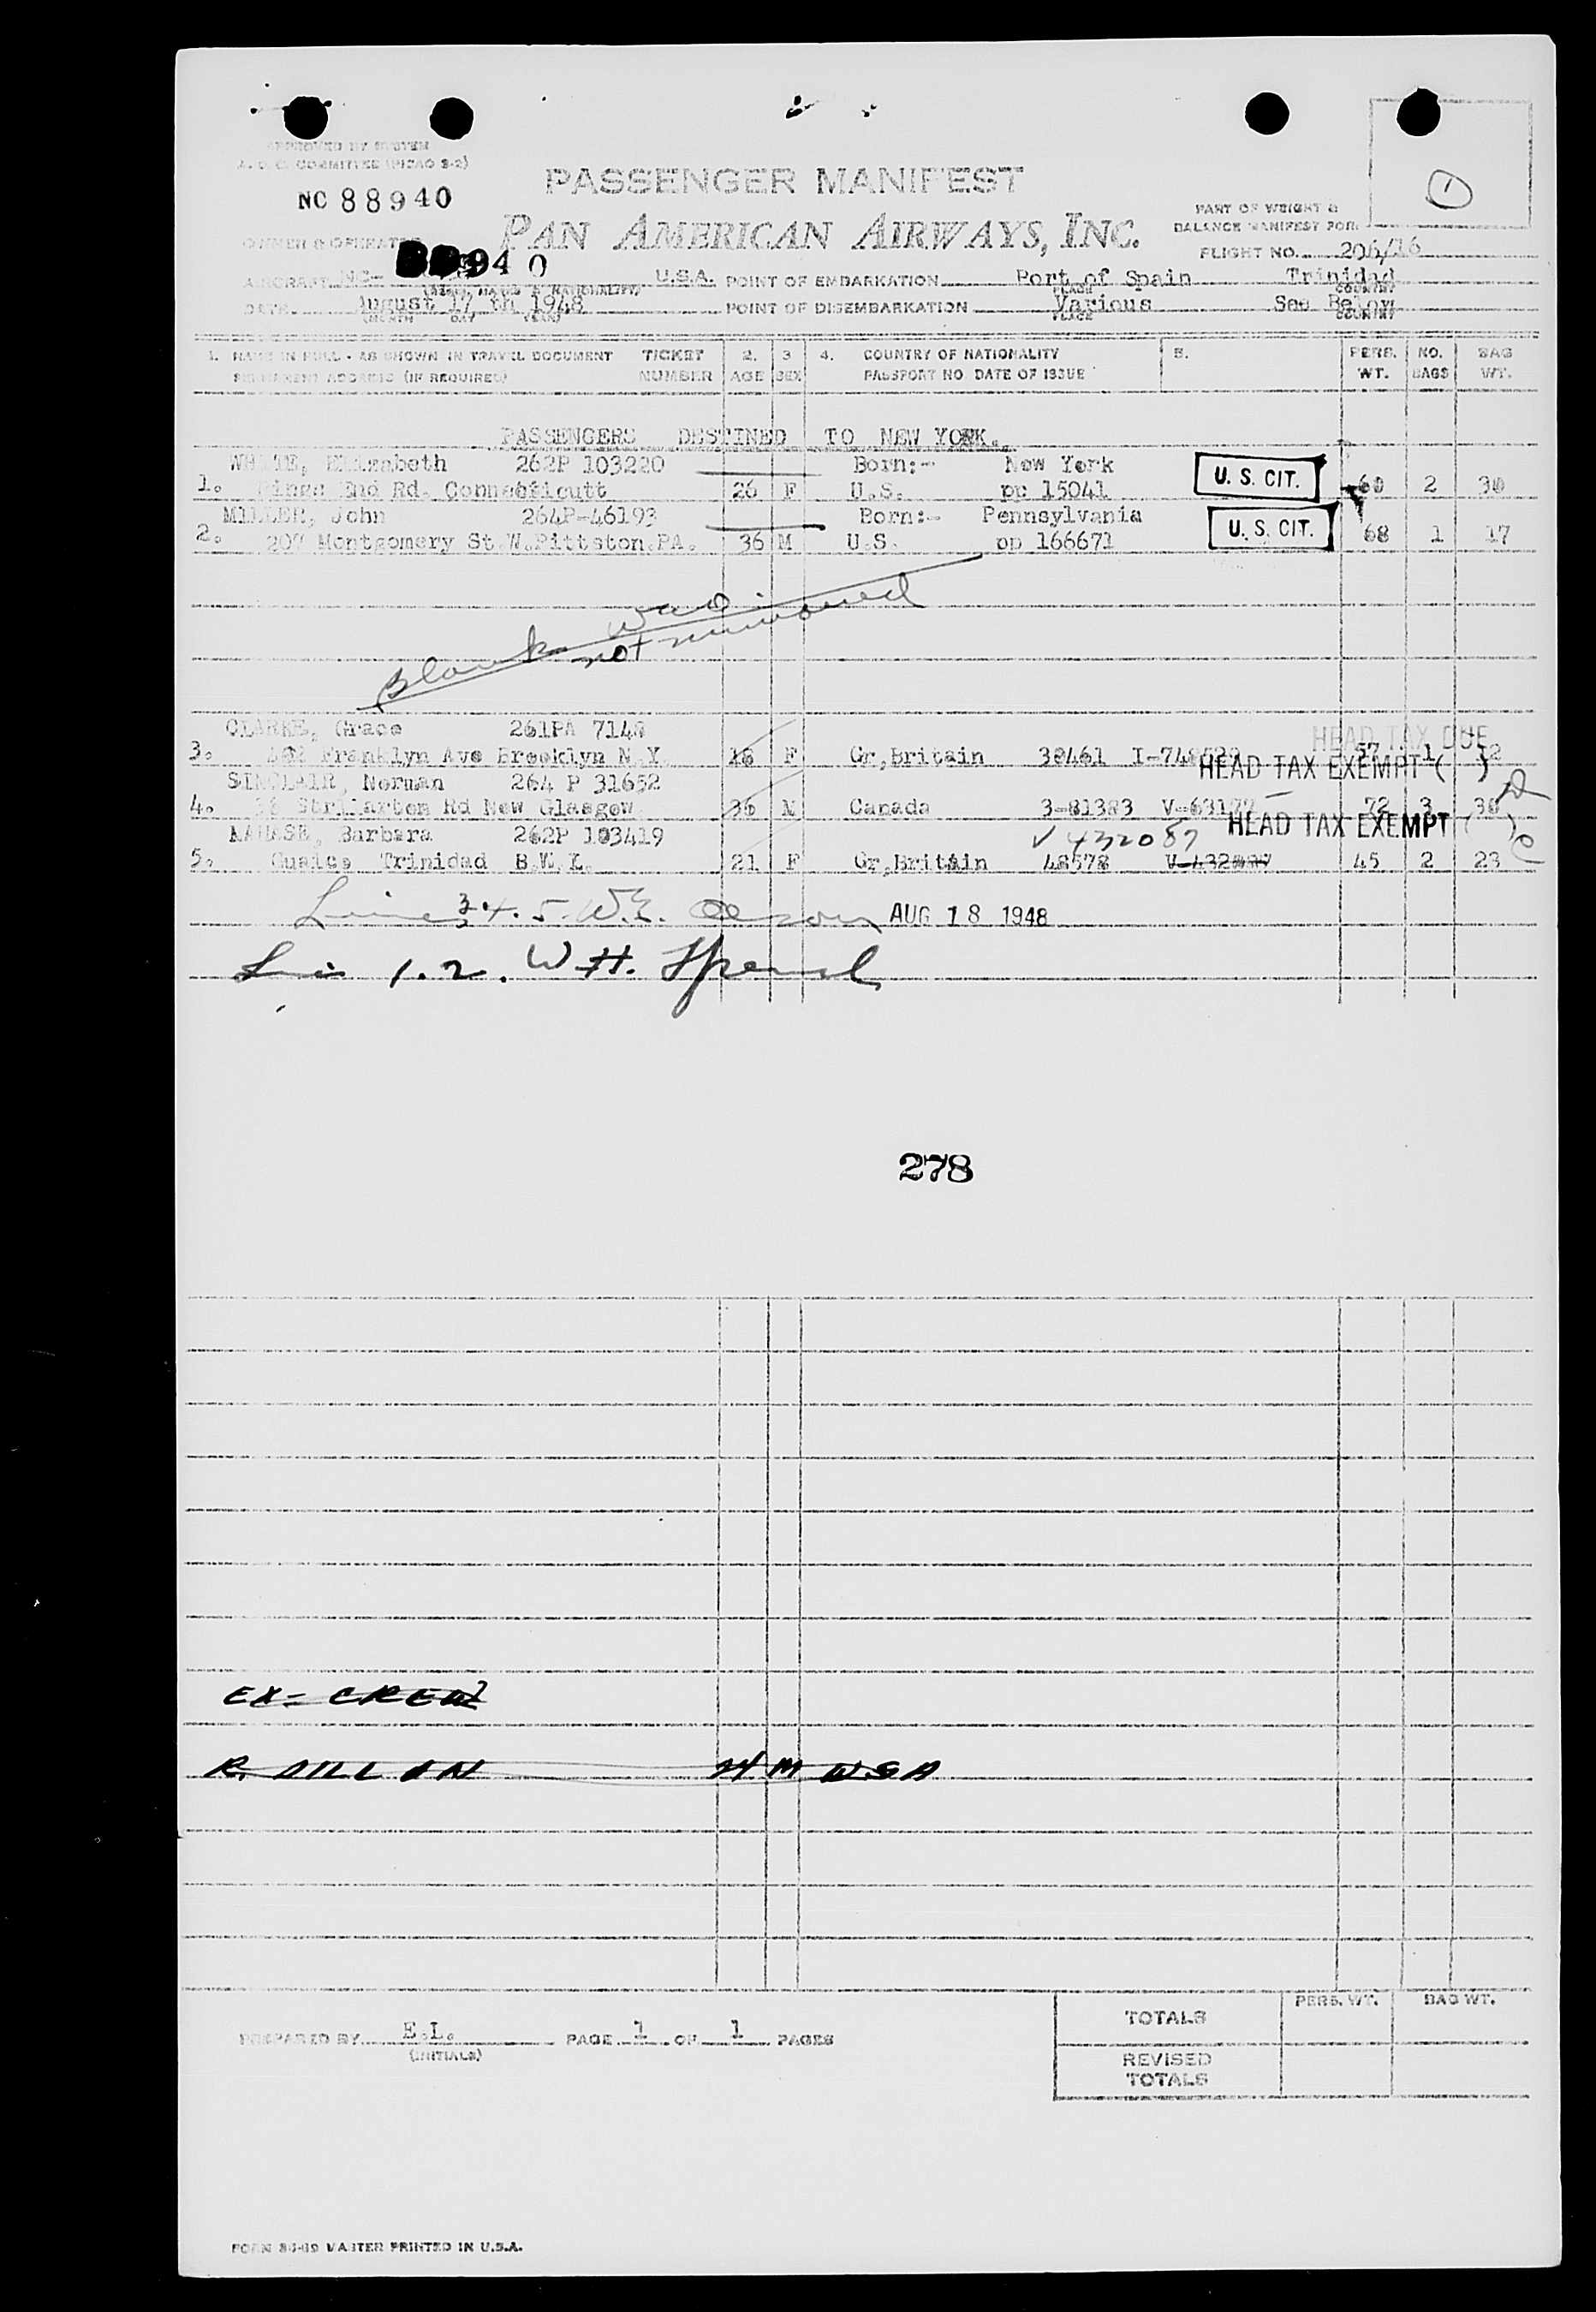 APPROVED BY SYSTEM
A. O. C. COMMITTEE (PICAO 3-2)
NC 88940
PASSENGER MANIFEST
PAN AMERICAN AIRWAYS, INC.
PART OF WEIGHT &
BALANCE MANIFEST FOR:
1
OWNER & OPERATOR
FLIGHT NO. 206/16
AIRCRAFT NC- 940 U.S.A. POINT OF EMBARKATION Port of Spain Trinidad
PLACE COUNTRY
DATE August 17 th 1948 POINT OF DISEMBARKATION Various See Below
(MONTH DAY YEAR) PLACE COUNTRY
1. NAME IN FULL - AS SHOWN IN TRAVEL DOCUMENT TICKET 2. 3 4. COUNTRY OF NATIONALITY 5. PERS. NO. BAG
PERMANENT ADDRESS (IF REQUIRED) NUMBER AGE SEX PASSPORT NO DATE OF ISSUE WT. BAGS WT.
PASSENGERS DESTINED TO NEW YORK.
WHITE, Elizabeth 262P 103220 Born:- New York
1. Rings End Rd. 26 F U.S. pp 15041 U. S. CIT. 60 2 30
MILLER, John 264P-46193 Born:- Pennsylvania
2. 207 Montgomery St.W.Pittston.PA. 36 M U.S. pp 166671 U. S. CIT. 68 1 17
Blank
not
CLARKE, Grace 261PA
HEAD TAX DUE
3. Franklyn Ave Brooklyn N.Y. 18 F Gr,Britain 38461 57 1
HEAD TAX EXEMPT ( )
SINCLAIR, Norman 264 P 31652
4. Rd New Glasgow 36 M Canada 72 3 30
HEAD TAX EXEMPT ( )
Barbara 262P 103419 V 432087
5. Trinidad B.W.I. 21 F Gr,Britain 48578 45 2 23
Lines 3.4.5. W.E. AUG 18 1948
1.2. W.H.
278
EX- CREW
R. DILLON M USA
PREPARED BY E.L. PAGE 1 OF 1 PAGES
(INITIALS)
TOTALS PERS. WT. BAG WT.
REVISED
TOTALS
MASTER PRINTED IN U.S.A.